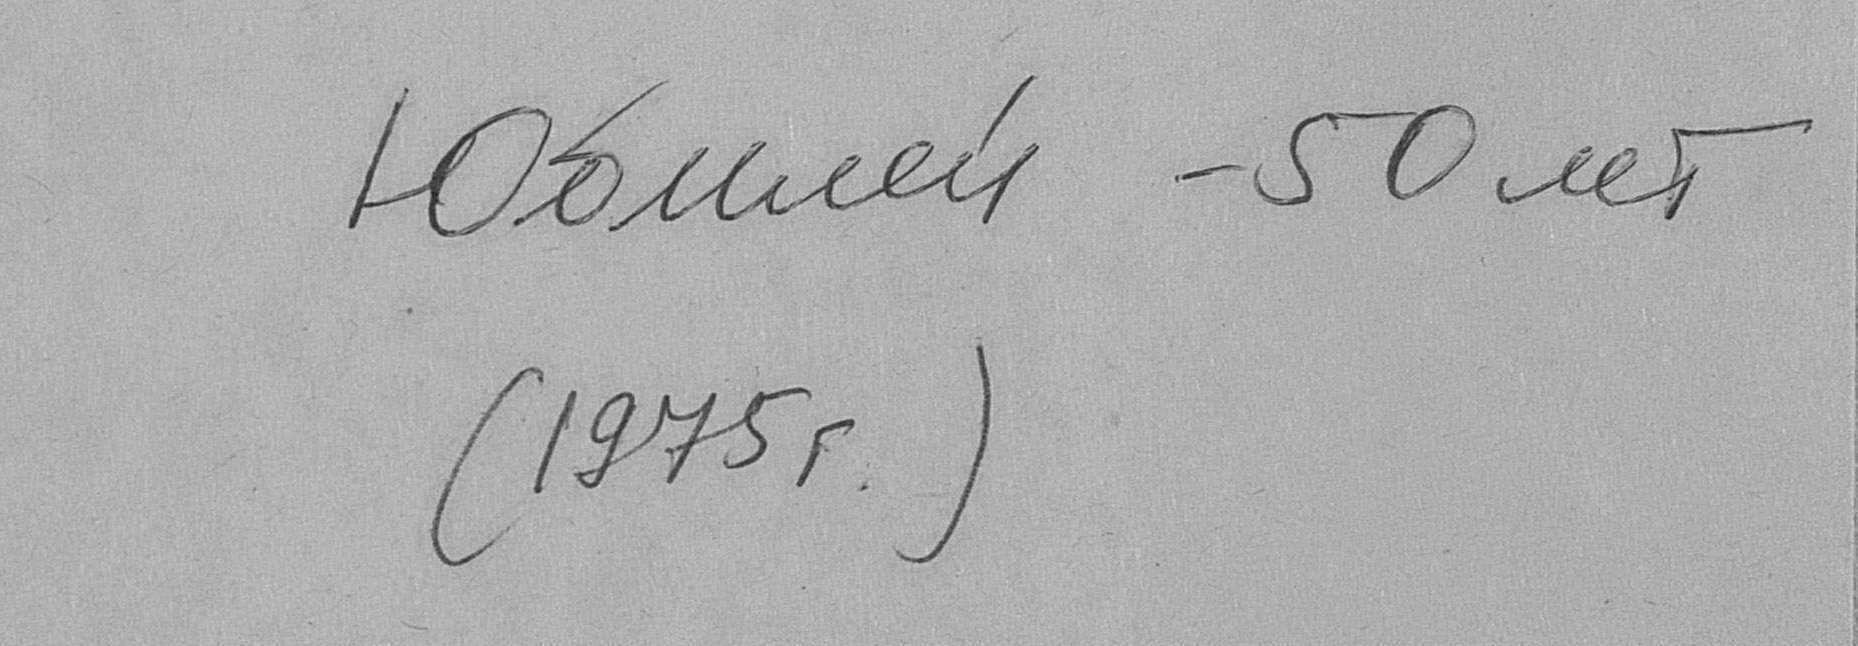 Юбилей - 50 лет
(1975 г.)